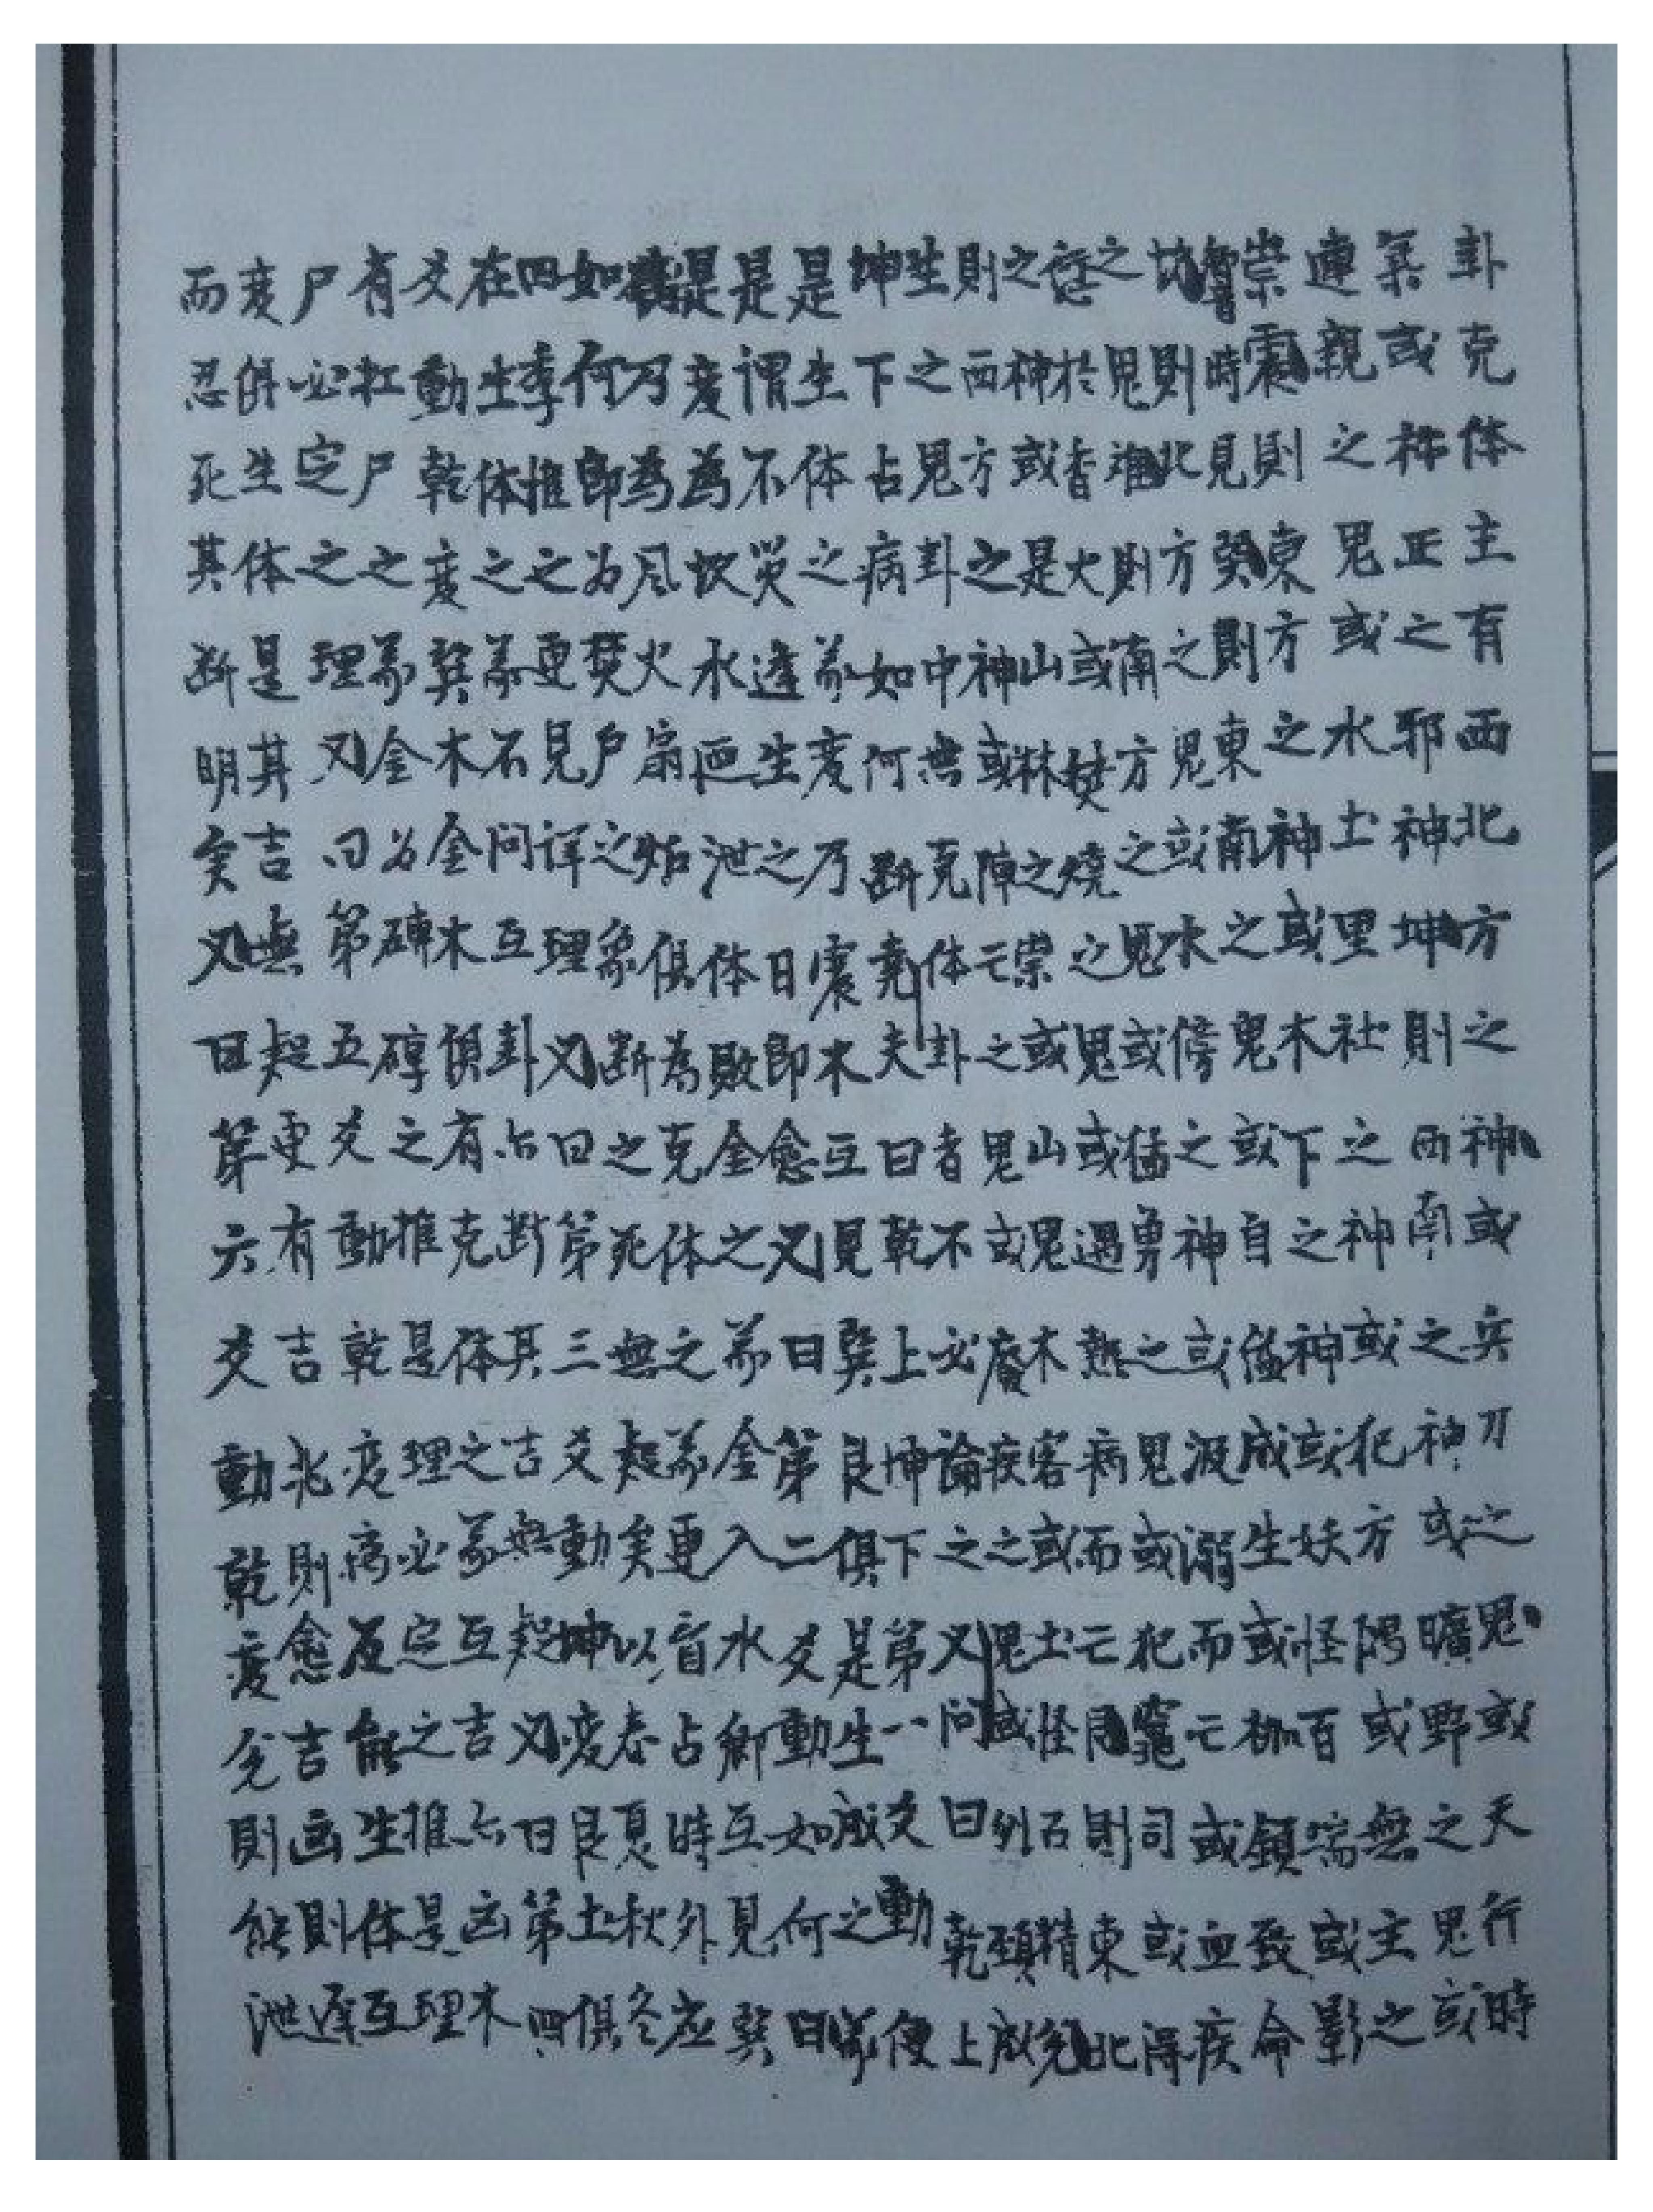 卦克体主有西北方之神或兵刀之鬼或天行時
或栋正之邪神坤則西南之神或曠野之鬼或
連親之鬼或水土里社之神或犯方隅或無主之
祟震則東方之神或木下之神或妖怪百端或影
時見巽則東南之鬼或自縊戕生或枷鎖致命
坎則北方之鬼或水傍之神或没溺而亡或血疾
之鬼離則南方之鬼或猛勇之神或犯竈司或得
於香火或焚燒之鬼或遇熱病而亡同則東北
之神或是山林之祟或山鬼木客或土怪石精兌
則西方之神或陣亡之鬼或廢疾之鬼或刎頸戕
生之鬼卦中無克体卦者不論之又問曰乾上
坤下占病如何断之堯夫曰乾上坤下第一爻動便
是生体之象变乃震木互見巽艮俱是生成之象
是謂不災逢生之日即愈又曰第二爻動如何曰
是变為坎水泄体敗金之象金入水鄉互見巽
乃為风火扇炉俱為克体之象更盲占時外应
如何即为焚户之象断之死無起矣以春夏秋冬
四季推之更見詳理又曰第三爻動坤变艮土俱
在生体之象石問互卦占断其吉無起又曰第四
爻動乾变巽木金木俱有克体之象互吉六凶木
有扛尸之象金为磚碎之推是理必定之推是理
尸必定之理又曰第五爻動乾变病反能生体互
变併生体是其吉無起更有吉兆則愈吉凶則遅
而忍死其断明矣又曰第六爻動乾变兌則能泄